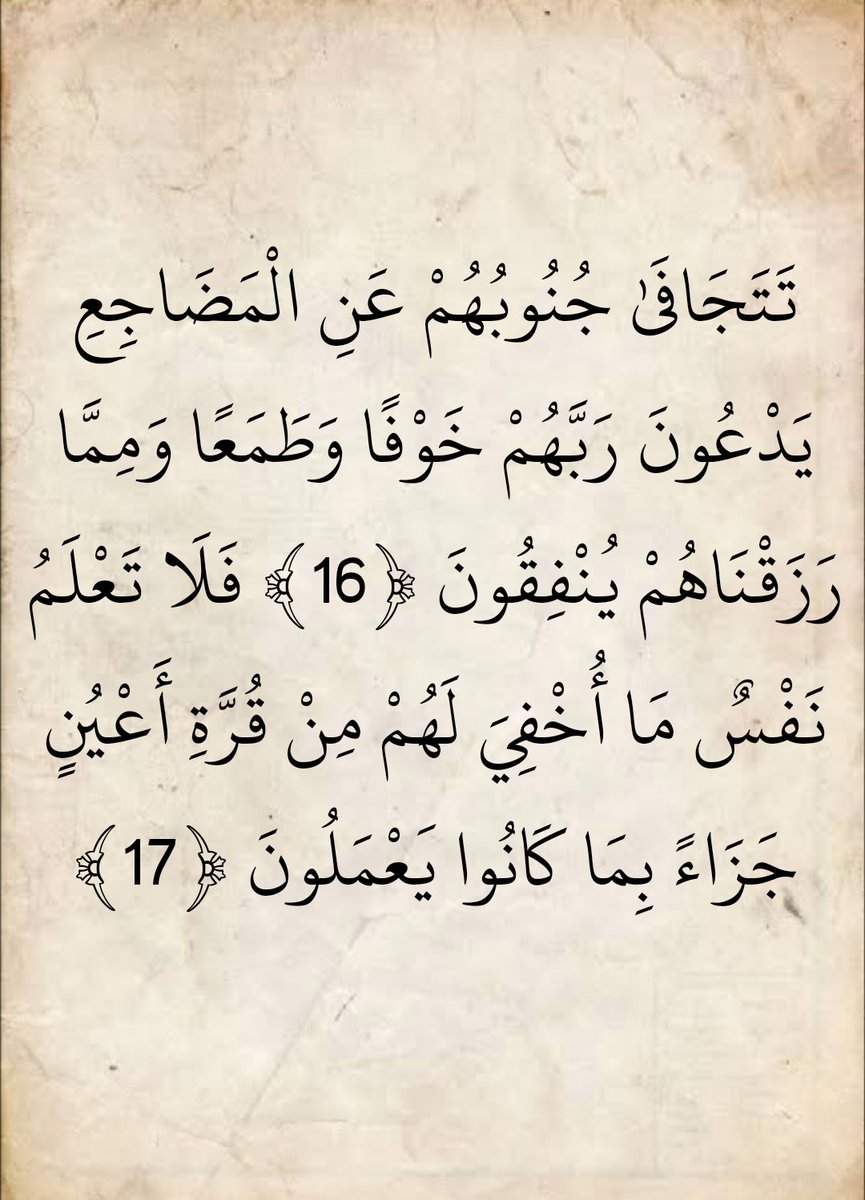 تَتَجَافَىٰ جُنُوبُهُمْ عَنِ الْمَضَاجِعِ
يَدْعُونَ رَبَّهُمْ خَوْفًا وَطَمَعًا وَمِمَّا
رَزَقْنَاهُمْ يُنْفِقُونَ ﴿16﴾ فَلَا تَعْلَمُ
نَفْسٌ مَا أُخْفِيَ لَهُمْ مِنْ قُرَّةِ أَعْيُنٍ
جَزَاءً بِمَا كَانُوا يَعْمَلُونَ ﴿17﴾